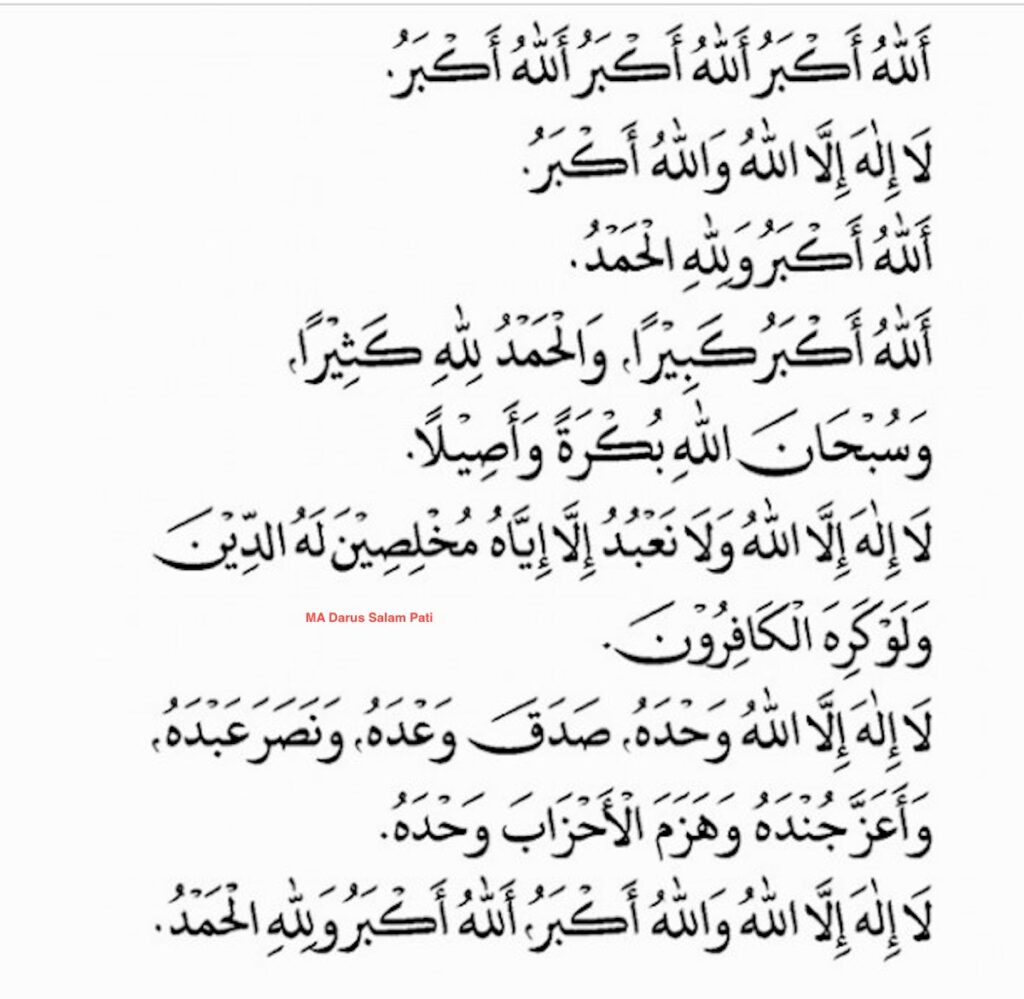 أَللهُ أَكْبَرُ أَللهُ أَكْبَرُ أَللهُ أَكْبَرُ.
لَا إِلٰهَ إِلَّا اللهُ وَاللهُ أَكْبَرُ.
أَللهُ أَكْبَرُ وَلِلّٰهِ الْحَمْدُ.
أَللهُ أَكْبَرُ كَبِيْرًا، وَالْحَمْدُ لِلّٰهِ كَثِيْرًا،
وَسُبْحَانَ اللهِ بُكْرَةً وَأَصِيْلًا.
لَا إِلٰهَ إِلَّا اللهُ وَلَا نَعْبُدُ إِلَّا إِيَّاهُ مُخْلِصِيْنَ لَهُ الدِّيْنَ
MA Darus Salam Pati
وَلَوْ كَرِهَ الْكَافِرُوْنَ.
لَا إِلٰهَ إِلَّا اللهُ وَحْدَهُ، صَدَقَ وَعْدَهُ، وَنَصَرَ عَبْدَهُ،
وَأَعَزَّ جُنْدَهُ وَهَزَمَ الْأَحْزَابَ وَحْدَهُ.
لَا إِلٰهَ إِلَّا اللهُ وَاللهُ أَكْبَرُ، أَللهُ أَكْبَرُ وَلِلّٰهِ الْحَمْدُ.